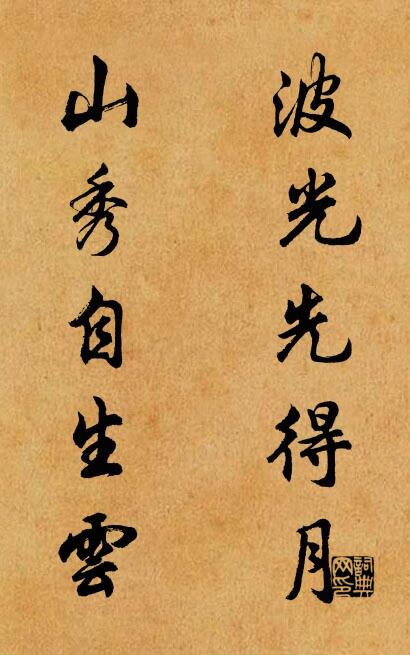 波光先得月
山秀自生雲
詞典網印